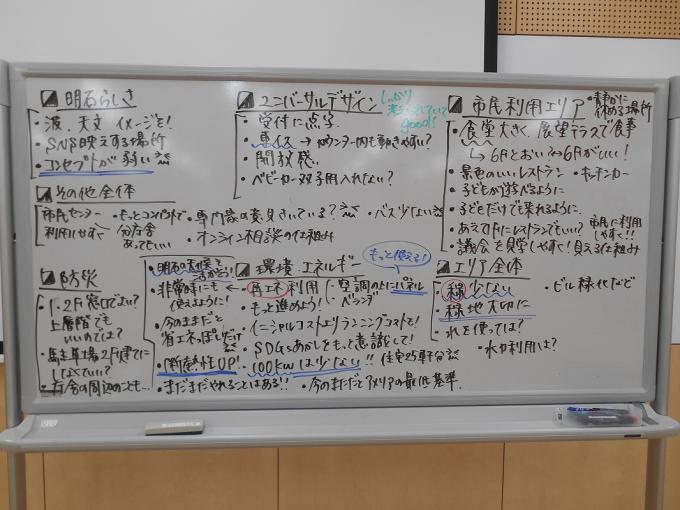 明石らしさ
・波、天文 イメージを!
・SNS映えする場所
・コンセプトが弱い
その他全体
市民センター
利用しやすく
・もっとコンパクトで
分庁舎
あってもいい
・専門家の意見きいている?
・バス少ない
・オンライン相談の仕組み
防災
・1・2F窓口でよい?
上層階でも
いいのでは?
・駐車場2F建てに
しなくていい?
・庁舎の周辺のことも…
ユニバーサルデザイン
しっかり
考えられていて
good!
・受付に点字
・車イス→カウンター内も動きやすい?
・開放感!
・ベビーカー双子用入れない?
環境・エネルギー
もっと使える!
・明石の気候を
活かそう!
・非常時にも
使えるように!
・今のままだと
省エネっぽいだけ
・断熱性UP!
・再エネ利用
・空調の上にパネル
・ベランダ
・もっと進めよう!
・イニシャルコストよりランニングコストを!
・SDGsあかしをもっと意識して!
・100kwは少ない!! 住宅25軒分
・まだまだやれることはある!!
・今のままだとアメリカの最低基準
市民利用エリア
・静かに
休める場所
・食堂大きく、展望テラスで食事
↳6Fとおい?↔6Fがいい!
・景色のいいレストラン
・キッチンカー
・子どもが遊べるように
・子どもだけで来れるように
・あえて1Fにレストランでもいい?
市民に利用
しやすく!!
・議会を見学しやすく!見える仕組み
エリア全体
・緑少ない
・ビル緑化など
・緑地大切に
・水を使っては?
・水力利用は?